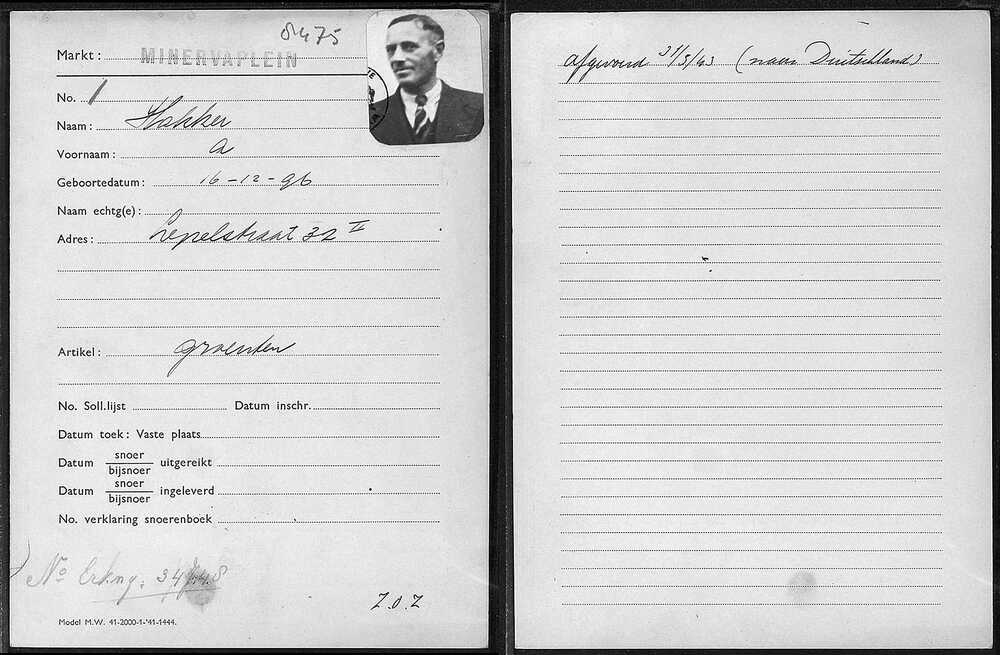 8475
Markt: MINERVAPLEIN
No. 1
Naam: Hakker
Voornaam: A
Geboortedatum: 16-12-96
Naam echtg(e):
Adres: Lepelstraat 32 II
Artikel: groenten
No. Soll.lijst Datum inschr.
Datum toek: Vaste plaats
Datum snoer/bijsnoer uitgereikt
Datum snoer/bijsnoer ingeleverd
No. verklaring snoerenboek
No Erkng. 34
Z.O.Z
Model M.W. 41-2000-1-'41-1444.
afgevoerd 31/5/43 (naar Duitschland)